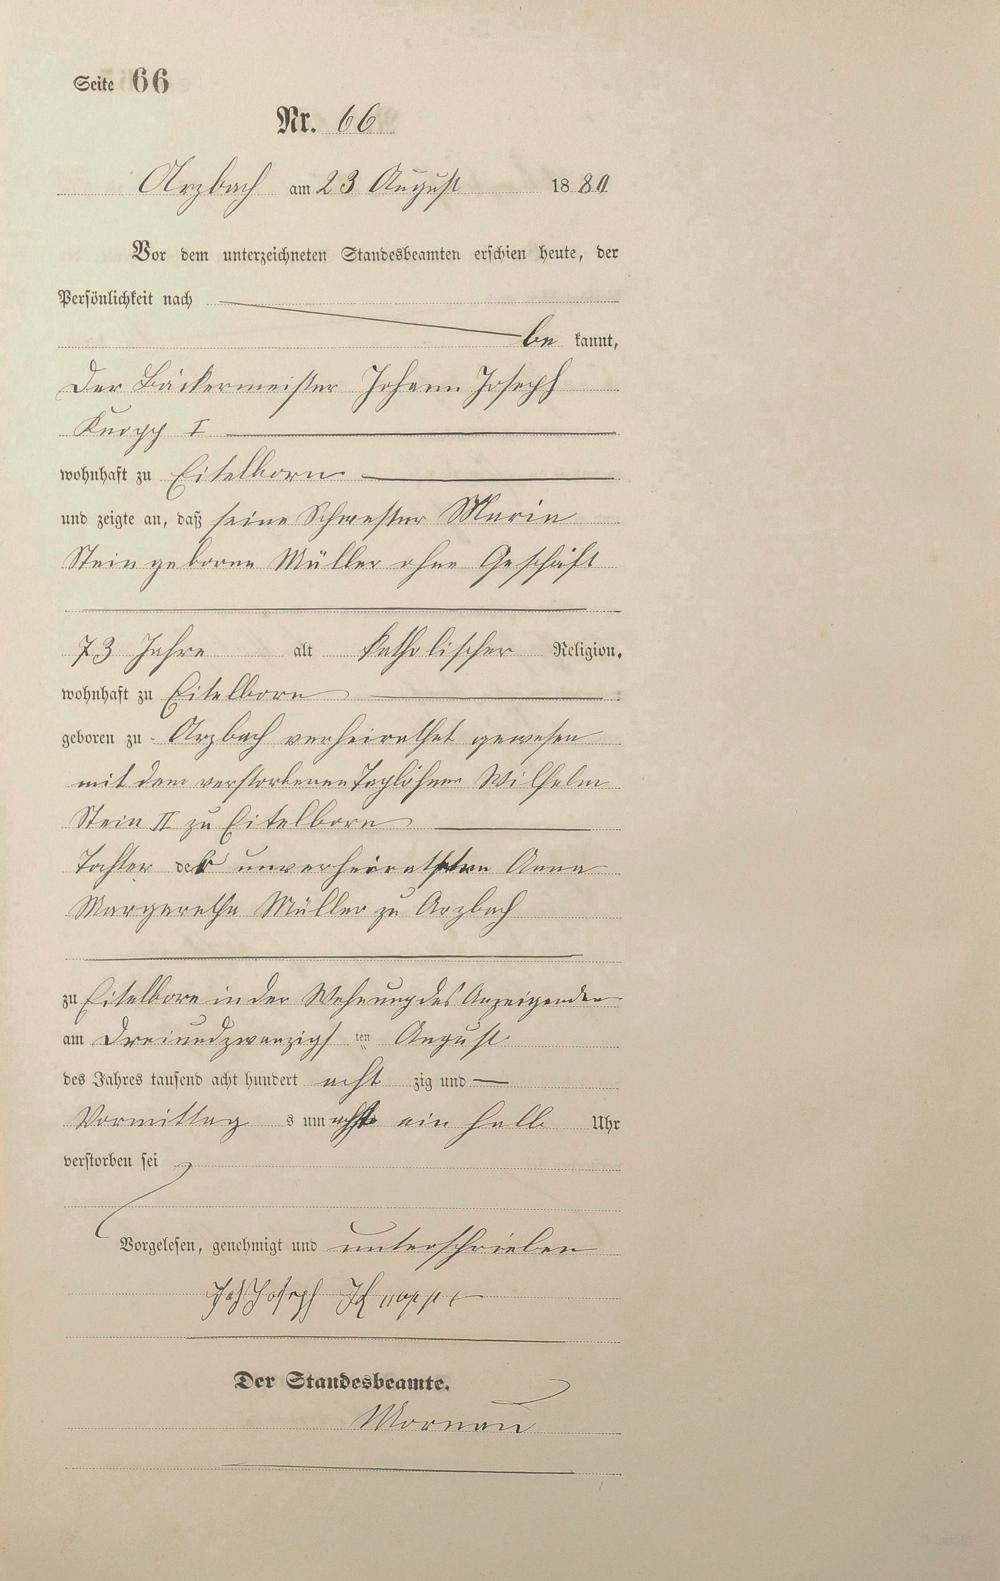 Seite 66
Nr. 66
Arzbach am 23 August 1880
Vor dem unterzeichneten Standesbeamten erschien heute, der
Persönlichkeit nach
be kannt,
der Bäckermeister Johann Joseph
Knopp I
wohnhaft zu Eitelborn
und zeigte an, daß seine Schwester Maria
Stein geborne Müller ohne Geschäft
73 Jahre alt katholischer Religion,
wohnhaft zu Eitelborn
geboren zu Arzbach verheirathet gewesen
mit dem verstorbenen Taglöhner Wilhelm
Stein II zu Eitelborn
Tochter der unverheiratheten Anna
Margaretha Müller zu Arzbach
zu Eitelborn in der Wohnung des Anzeigenden
am Dreiundzwanzigs ten August
des Jahres tausend acht hundert acht zig und
Vormittag s um acht ein halb Uhr
verstorben sei
Vorgelesen, genehmigt und unterschrieben
Joh Joseph Knopp I
Der Standesbeamte.